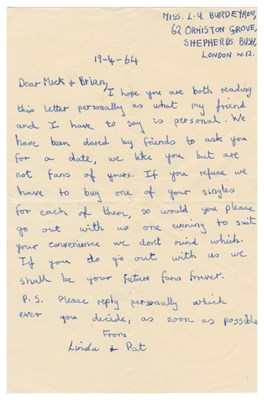 MISS. L-Y BURDEYRON,
62 ORMISTON GROVE,
SHEPHERDS BUSH,
LONDON W.12.
19-4-64
Dear Mick & Brian,
I hope you are both reading
this letter personally as what my friend
and I have to say is personal. We
have been dared by friends to ask you
for a date, we like you but are
not fans of yours. If you refuse we
have to buy one of your singles
for each of them, so would you please
go out with us one evening to suit
your convenience we dont mind which.
If you do go out with us we
shall be your future fans forever.
P.S. Please reply personally which
ever you decide, as soon as possible
From
Linda & Pat